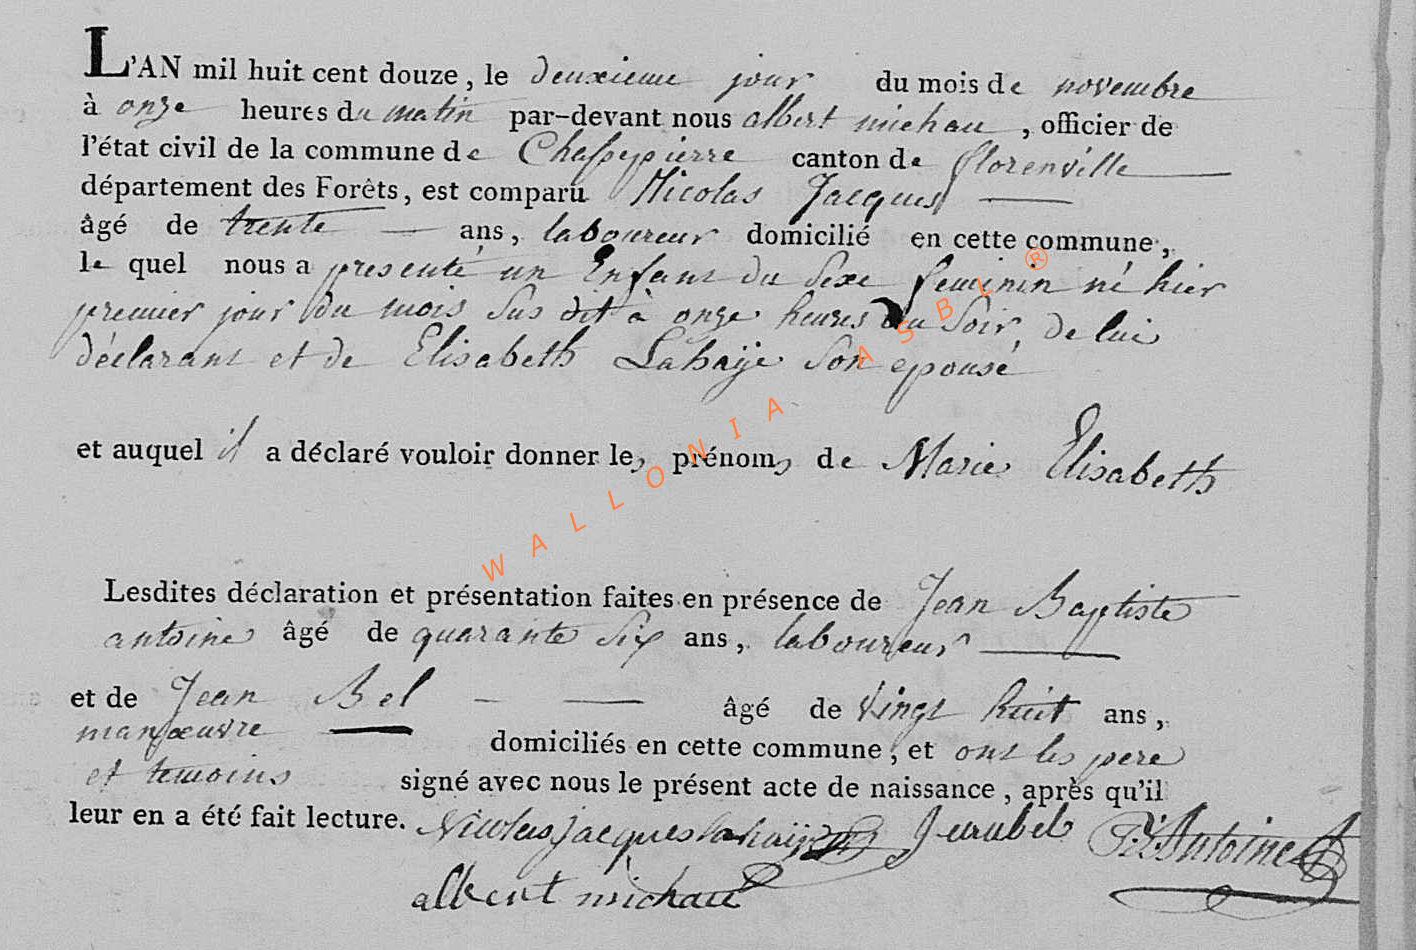 L'AN mil huit cent douze, le deuxieme jour du mois de novembre
à onze heures du matin par-devant nous albert michau, officier de
l'état civil de la commune de Chassepierre canton de florenville
département des Forêts, est comparu Nicolas Jacques
âgé de trente ans, laboureur domicilié en cette commune,
le quel nous a presenté un Enfant du Sexe feminin né hier
premier jour du mois Sus dit à onze heures du Soir, de lui
déclarant et de Elisabeth Lahaÿe Son epouse
et auquel il a déclaré vouloir donner les prénoms de Marie Elisabeth
Lesdites déclaration et présentation faites en présence de Jean Baptiste
antoine âgé de quarante Six ans, laboureur
et de Jean Bel âgé de Vingt huit ans,
manœuvre domiciliés en cette commune, et ont les pere
et temoins signé avec nous le présent acte de naissance, après qu'il
leur en a été fait lecture. Nicolas Jacques Jeanbel Antoine
albert michau
WALLONIA ASBL ®